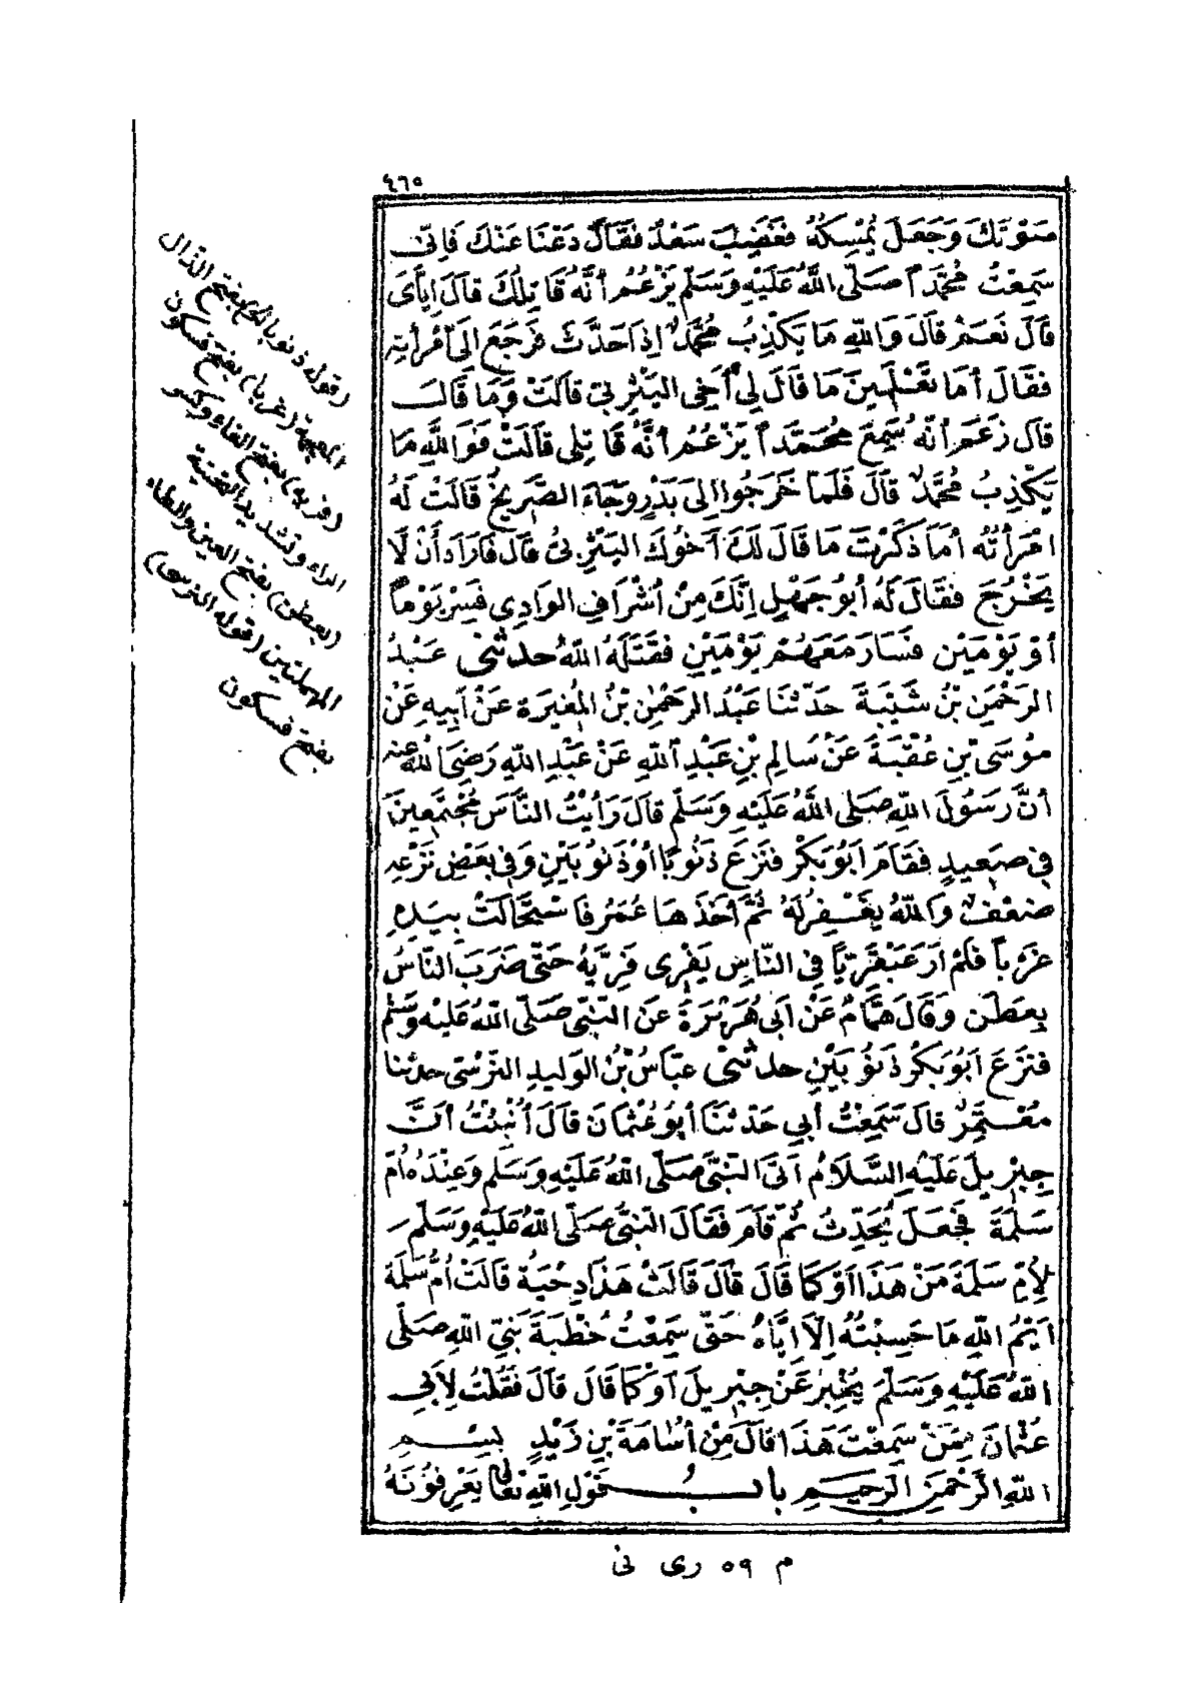 ٤٦٥
صَوْتَكَ وَجَعَلَ يُمْسِكُهُ فَغَضِبَ سَعْدٌ فَقَالَ دَعْنَا عَنْكَ فَإِنِّي
سَمِعْتُ مُحَمَّدًا صَلَّى اللَّهُ عَلَيْهِ وَسَلَّمَ يَزْعُمُ أَنَّهُ قَاتِلُكَ قَالَ إِيَّايَ
قَالَ نَعَمْ قَالَ وَاللَّهِ مَا يَكْذِبُ مُحَمَّدٌ إِذَا حَدَّثَ فَرَجَعَ إِلَى امْرَأَتِهِ
فَقَالَ أَمَا تَعْلَمِينَ مَا قَالَ لِي أَخِي الْيَثْرِبِيُّ قَالَتْ وَمَا قَالَ
قَالَ زَعَمَ أَنَّهُ سَمِعَ مُحَمَّدًا يَزْعُمُ أَنَّهُ قَاتِلِي قَالَتْ فَوَاللَّهِ مَا
يَكْذِبُ مُحَمَّدٌ قَالَ فَلَمَّا خَرَجُوا إِلَى بَدْرٍ وَجَاءَ الصَّرِيخُ قَالَتْ لَهُ
امْرَأَتُهُ أَمَا ذَكَرْتَ مَا قَالَ لَكَ أَخُوكَ الْيَثْرِبِيُّ قَالَ فَأَرَادَ أَنْ لَا
يَخْرُجَ فَقَالَ لَهُ أَبُو جَهْلٍ إِنَّكَ مِنْ أَشْرَافِ الْوَادِي فَسِرْ يَوْمًا
أَوْ يَوْمَيْنِ فَسَارَ مَعَهُمْ يَوْمَيْنِ فَقَتَلَهُ اللَّهُ حدثني عَبْدُ
الرَّحْمَنِ بْنُ شَيْبَةَ حَدَّثَنَا عَبْدُ الرَّحْمَنِ بْنُ الْمُغِيرَةِ عَنْ أَبِيهِ عَنْ
مُوسَى بْنِ عُقْبَةَ عَنْ سَالِمِ بْنِ عَبْدِ اللَّهِ عَنْ عَبْدِ اللَّهِ رَضِيَ اللَّهُ عَنْهُ
أَنَّ رَسُولَ اللَّهِ صَلَّى اللَّهُ عَلَيْهِ وَسَلَّمَ قَالَ رَأَيْتُ النَّاسَ مُجْتَمِعِينَ
فِي صَعِيدٍ فَقَامَ أَبُو بَكْرٍ فَنَزَعَ ذَنُوبًا أَوْ ذَنُوبَيْنِ وَفِي بَعْضِ نَزْعِهِ
ضَعْفٌ وَاللَّهُ يَغْفِرُ لَهُ ثُمَّ أَخَذَهَا عُمَرُ فَاسْتَحَالَتْ بِيَدِهِ
غَرْبًا فَلَمْ أَرَ عَبْقَرِيًّا فِي النَّاسِ يَفْرِي فَرِيَّهُ حَتَّى ضَرَبَ النَّاسُ
بِعَطَنٍ وَقَالَ هَمَّامٌ عَنْ أَبِي هُرَيْرَةَ عَنِ النَّبِيِّ صَلَّى اللَّهُ عَلَيْهِ وَسَلَّمَ
فَنَزَعَ أَبُو بَكْرٍ ذَنُوبَيْنِ حدثني عَبَّاسُ بْنُ الْوَلِيدِ النَّرْسِيُّ حدثنا
مُعْتَمِرٌ قَالَ سَمِعْتُ أَبِي حَدَّثَنَا أَبُو عُثْمَانَ قَالَ أُنْبِئْتُ أَنَّ
جِبْرِيلَ عَلَيْهِ السَّلَامُ أَتَى النَّبِيَّ صَلَّى اللَّهُ عَلَيْهِ وَسَلَّمَ وَعِنْدَهُ أُمُّ
سَلَمَةَ فَجَعَلَ يُحَدِّثُ ثُمَّ قَامَ فَقَالَ النَّبِيُّ صَلَّى اللَّهُ عَلَيْهِ وَسَلَّمَ
لِأُمِّ سَلَمَةَ مَنْ هَذَا أَوْ كَمَا قَالَ قَالَ قَالَتْ هَذَا دِحْيَةُ قَالَتْ أُمُّ سَلَمَةَ
ايْمُ اللَّهِ مَا حَسِبْتُهُ إِلَّا إِيَّاهُ حَتَّى سَمِعْتُ خُطْبَةَ نَبِيِّ اللَّهِ صَلَّى
اللَّهُ عَلَيْهِ وَسَلَّمَ يُخْبِرُ عَنْ جِبْرِيلَ أَوْ كَمَا قَالَ قَالَ فَقُلْتُ لِأَبِي
عُثْمَانَ مِمَّنْ سَمِعْتَ هَذَا قَالَ مِنْ أُسَامَةَ بْنِ زَيْدٍ بِسْمِ
اللَّهِ الرَّحْمَنِ الرَّحِيمِ بَابُ قَوْلِ اللَّهِ تَعَالَى يَعْرِفُونَهُ
(قوله ذنوبا) بفتح الذال
المعجمة (غربا) بفتح فسكون
(فريه) بفتح الفاء وكسر
الراء وتشديد التحتية
(بعطن) بفتح العين والطاء
المهملتين (قوله النرسي)
بفتح فسكون
م ٥٩ رى نى